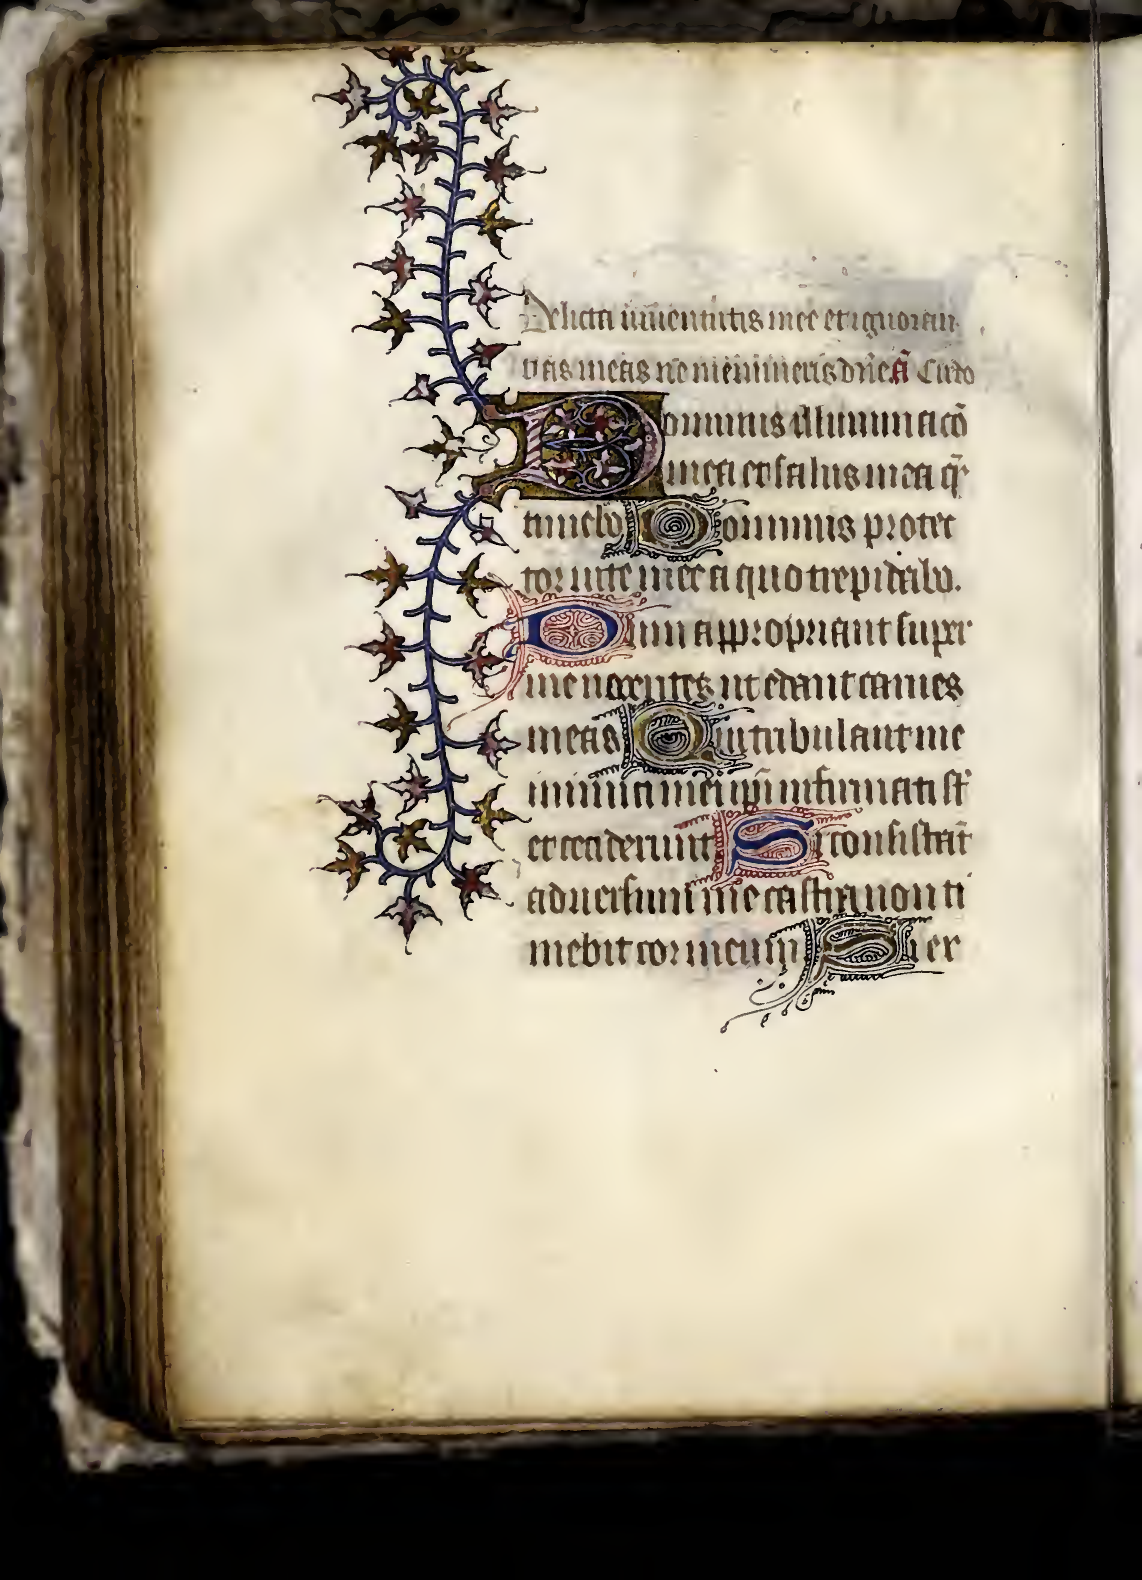 Delicta iuuentutis mee et ignoran
tias meas ne memineris dñe. ã Credo
Dominus illuminacõ
mea et salus mea q̃
timebo Dominus protec
tor uite mee a quo trepidabo.
Dum appropriant super
me nocentes ut edant carnes
meas Qui tribulant me
inimici mei ip̃i infirmati st̃
et ceciderunt Si consistãt
aduersum me castra non ti
mebit cor meum Si ex